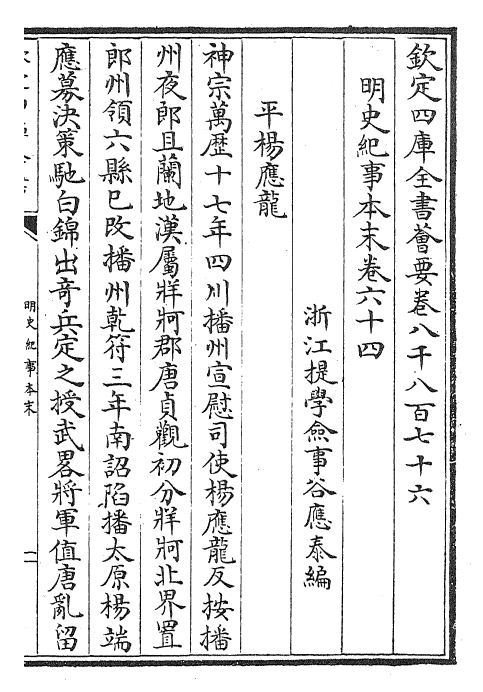 欽定四庫全書薈要卷八千八百七十六
明史紀事本末卷六十四
浙江提學僉事谷應泰編
平楊應龍
神宗萬歷十七年四川播州宣慰司使楊應龍反按播
州夜郎且蘭地漢屬牂牁郡唐貞觀初分牂牁北界置
郎州領六縣已改播州乾符三年南詔陷播太原楊端
應募決策馳白錦出竒兵定之授武畧將軍值唐亂留
明史紀事本末
一